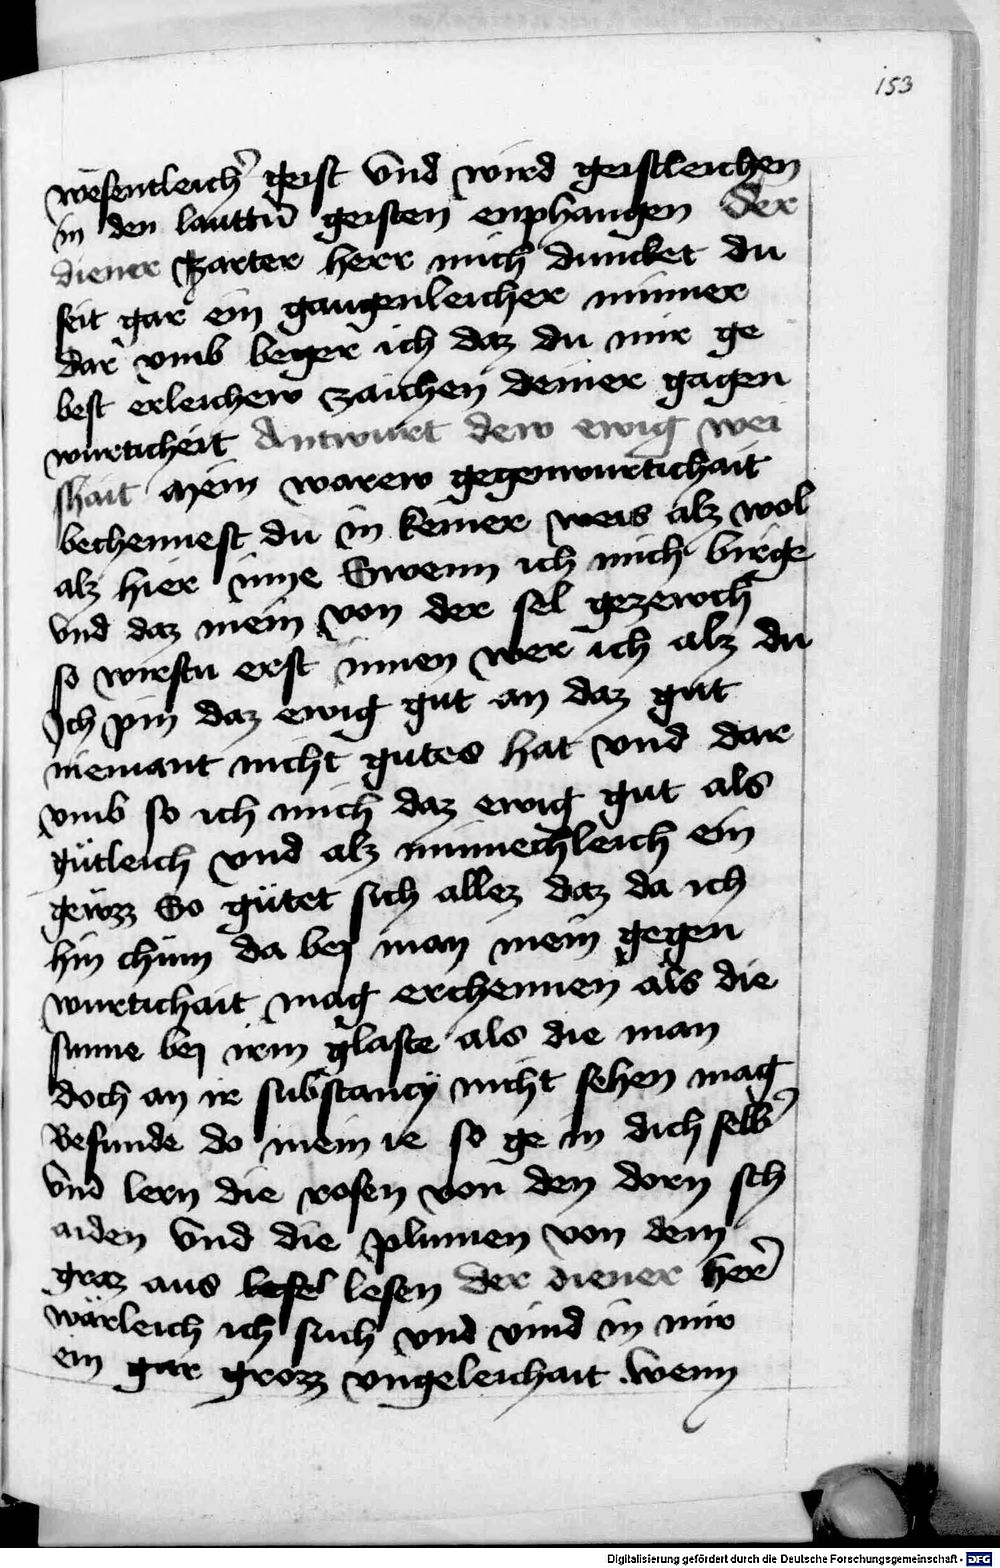 153
wesentleicher̾ geist vnd wird geistleichen
in den lauttn̄ geisten enphangen Der
diener Zarter herr mich duncket du
seit gar ein gaugenleicher minner
dar vmb beger ich daz du mir ge
best erleichew zaichen deiner gagen
wurticheit Antwurt dew ewig wei
shait Mein warew gegenwurtichait
bechennest du in keiner weis alz wol
alz hier inne Swenn ich mich birge
vnd daz mein von der sel gezewch
so wirstu erst innen wer ich alz du
Ich pin daz ewig gut an daz gut
niemant nicht gutes hat vnd dar
vmb so ich mich daz ewig gut als
gütleich vnd alz minnechleich ein
geüzz So gütet sich allez daz da ich
hin chum da bej man mein gegen
wurtichait mag erchennen als die
sunne bej irm glaste als die man
doch an ir substancÿ nicht sehen mag
Befunde do mein ie so ge in dich selb̾
Vnd lern die rosen von den dorn sch
aiden Vnd die plumen von dem
graz aus lesen der diener her̾
wärleich ich such vnd vind in mir
ein gar grozz vngeleichait wenn
Digitalisierung gefördert durch die Deutsche Forschungsgemeinschaft - DFG